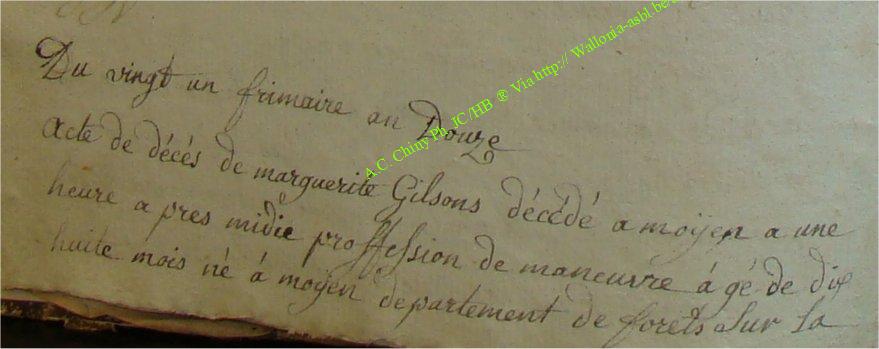 Du vingt un frimaire an Douze
acte de décés de marguerite Gilsons décédé a moÿen a une
heure a pres midie proffession de maneuvre á gé de dix
huite mois né á moÿen departement de forets sur la
A.C. Chiny Ph. JC/HB ® Via http:// Wallonia-asbl.be